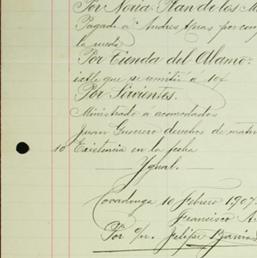 Por Noria Plan de los M
Pagado a Andres por com
la rueda
Por Tienda del Alamo:
que se remitió a 10 f
Por Sirvientes.
Ministrado a acomodados
Juan Guerrero derechos de matri
10 Existencia en la fecha
Ygual.
Covadonga 10 Febrero 1907.
Francisco
Por o/n. Felipe